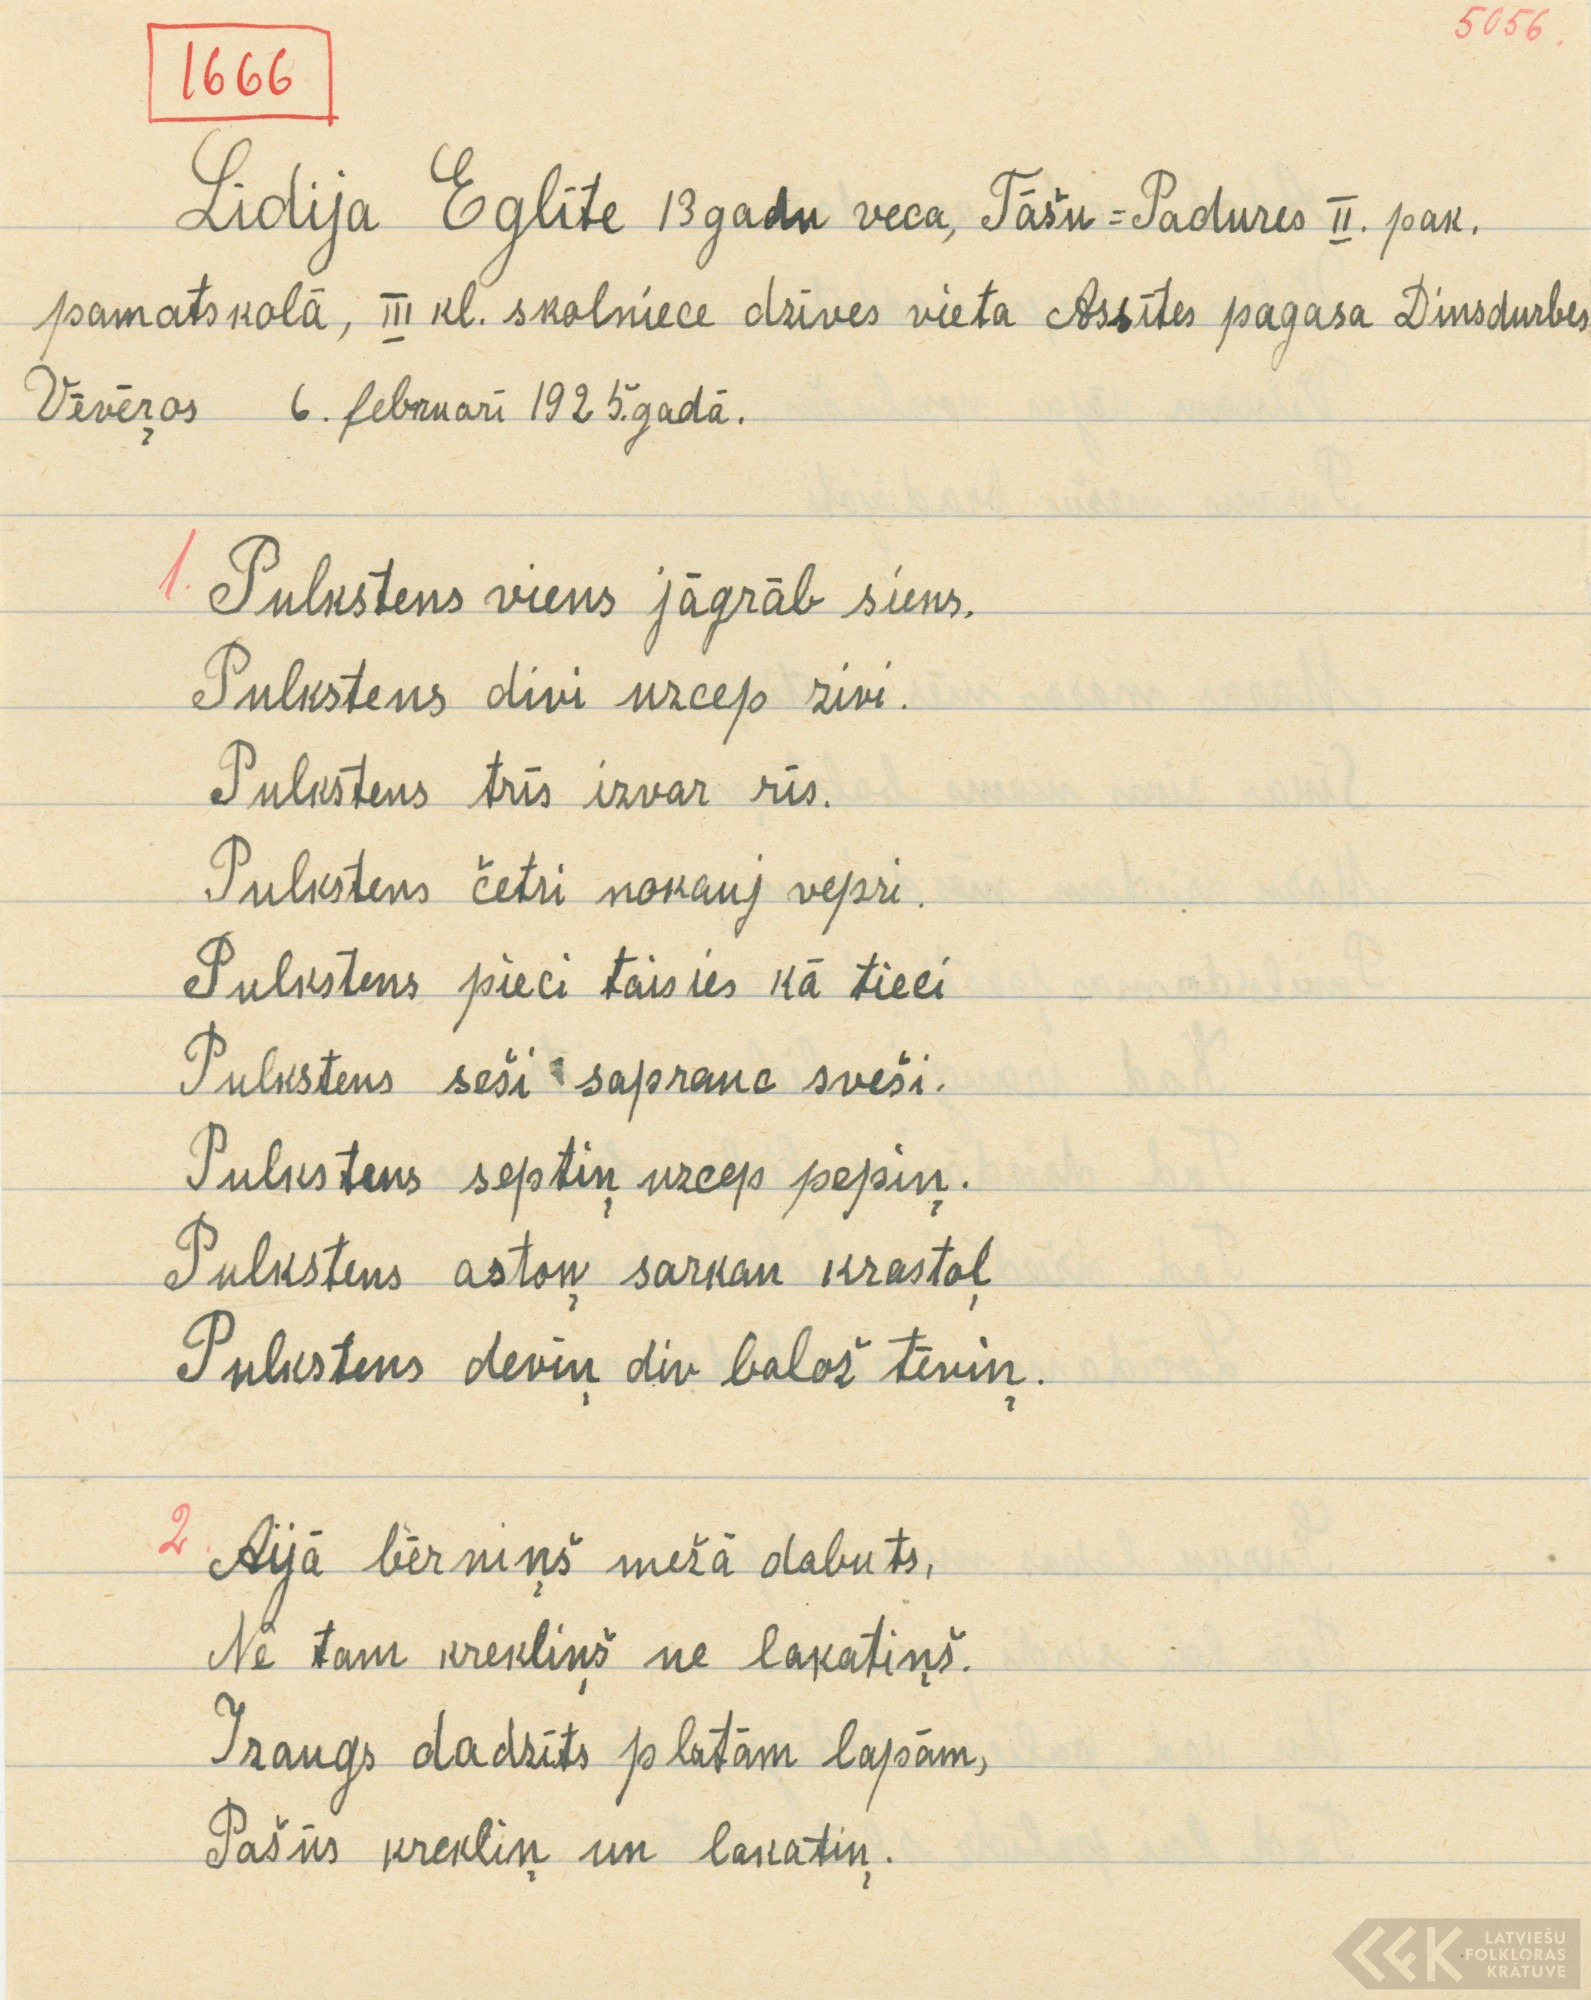 5056.
1666
Lidija Eglīte 13 gadu veca, Tāšu=Padures II. pak.
pamatskolā, III kl. skolniece dzīves vieta Assītes pagasa Dinsdurbes
Vēvēŗos 6. februarī 1925. gadā.
1. Pulkstens viens jāgrāb siens.
Pulkstens divi uzcep zivi.
Pulkstens trīs izvar rīs.
Pulkstens četri nokauj vepri.
Pulkstens pieci taisies kā tieci
Pulkstens seši saprauc sveši.
Pulkstens septiņ uzcep pepiņ.
Pulkstens astoņ sarkan krastoļ
Pulkstens deviņ div balož tēviņ.
2. Aijā bērniņš mežā dabuts,
Ne tam krekliņš ne lakatiņš.
Izaugs dadzīts platām lapām,
Pašūs krekliņ un lakatiņ.
LATVIEŠU
FOLKLORAS
KRĀTUVE